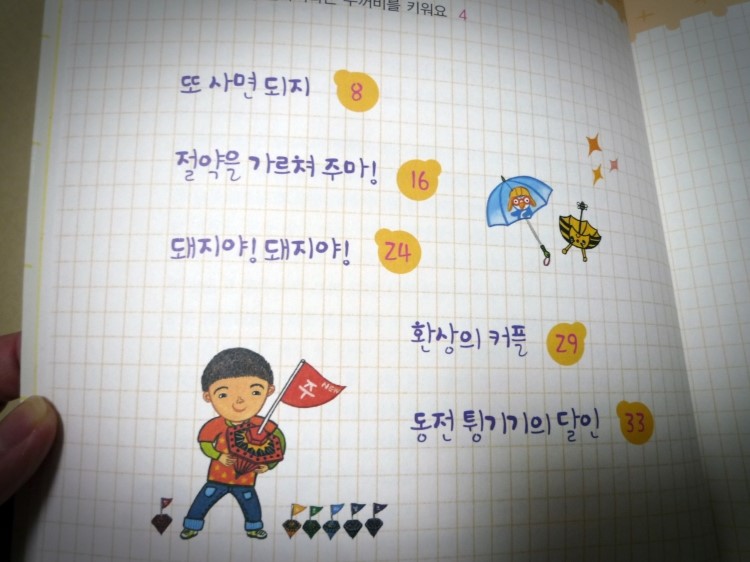 두꺼비를 키워요 4
또 사면 되지 8
절약을 가르쳐 주마! 16
돼지야! 돼지야! 24
환상의 커플 29
동전 튕기기의 달인 33
주